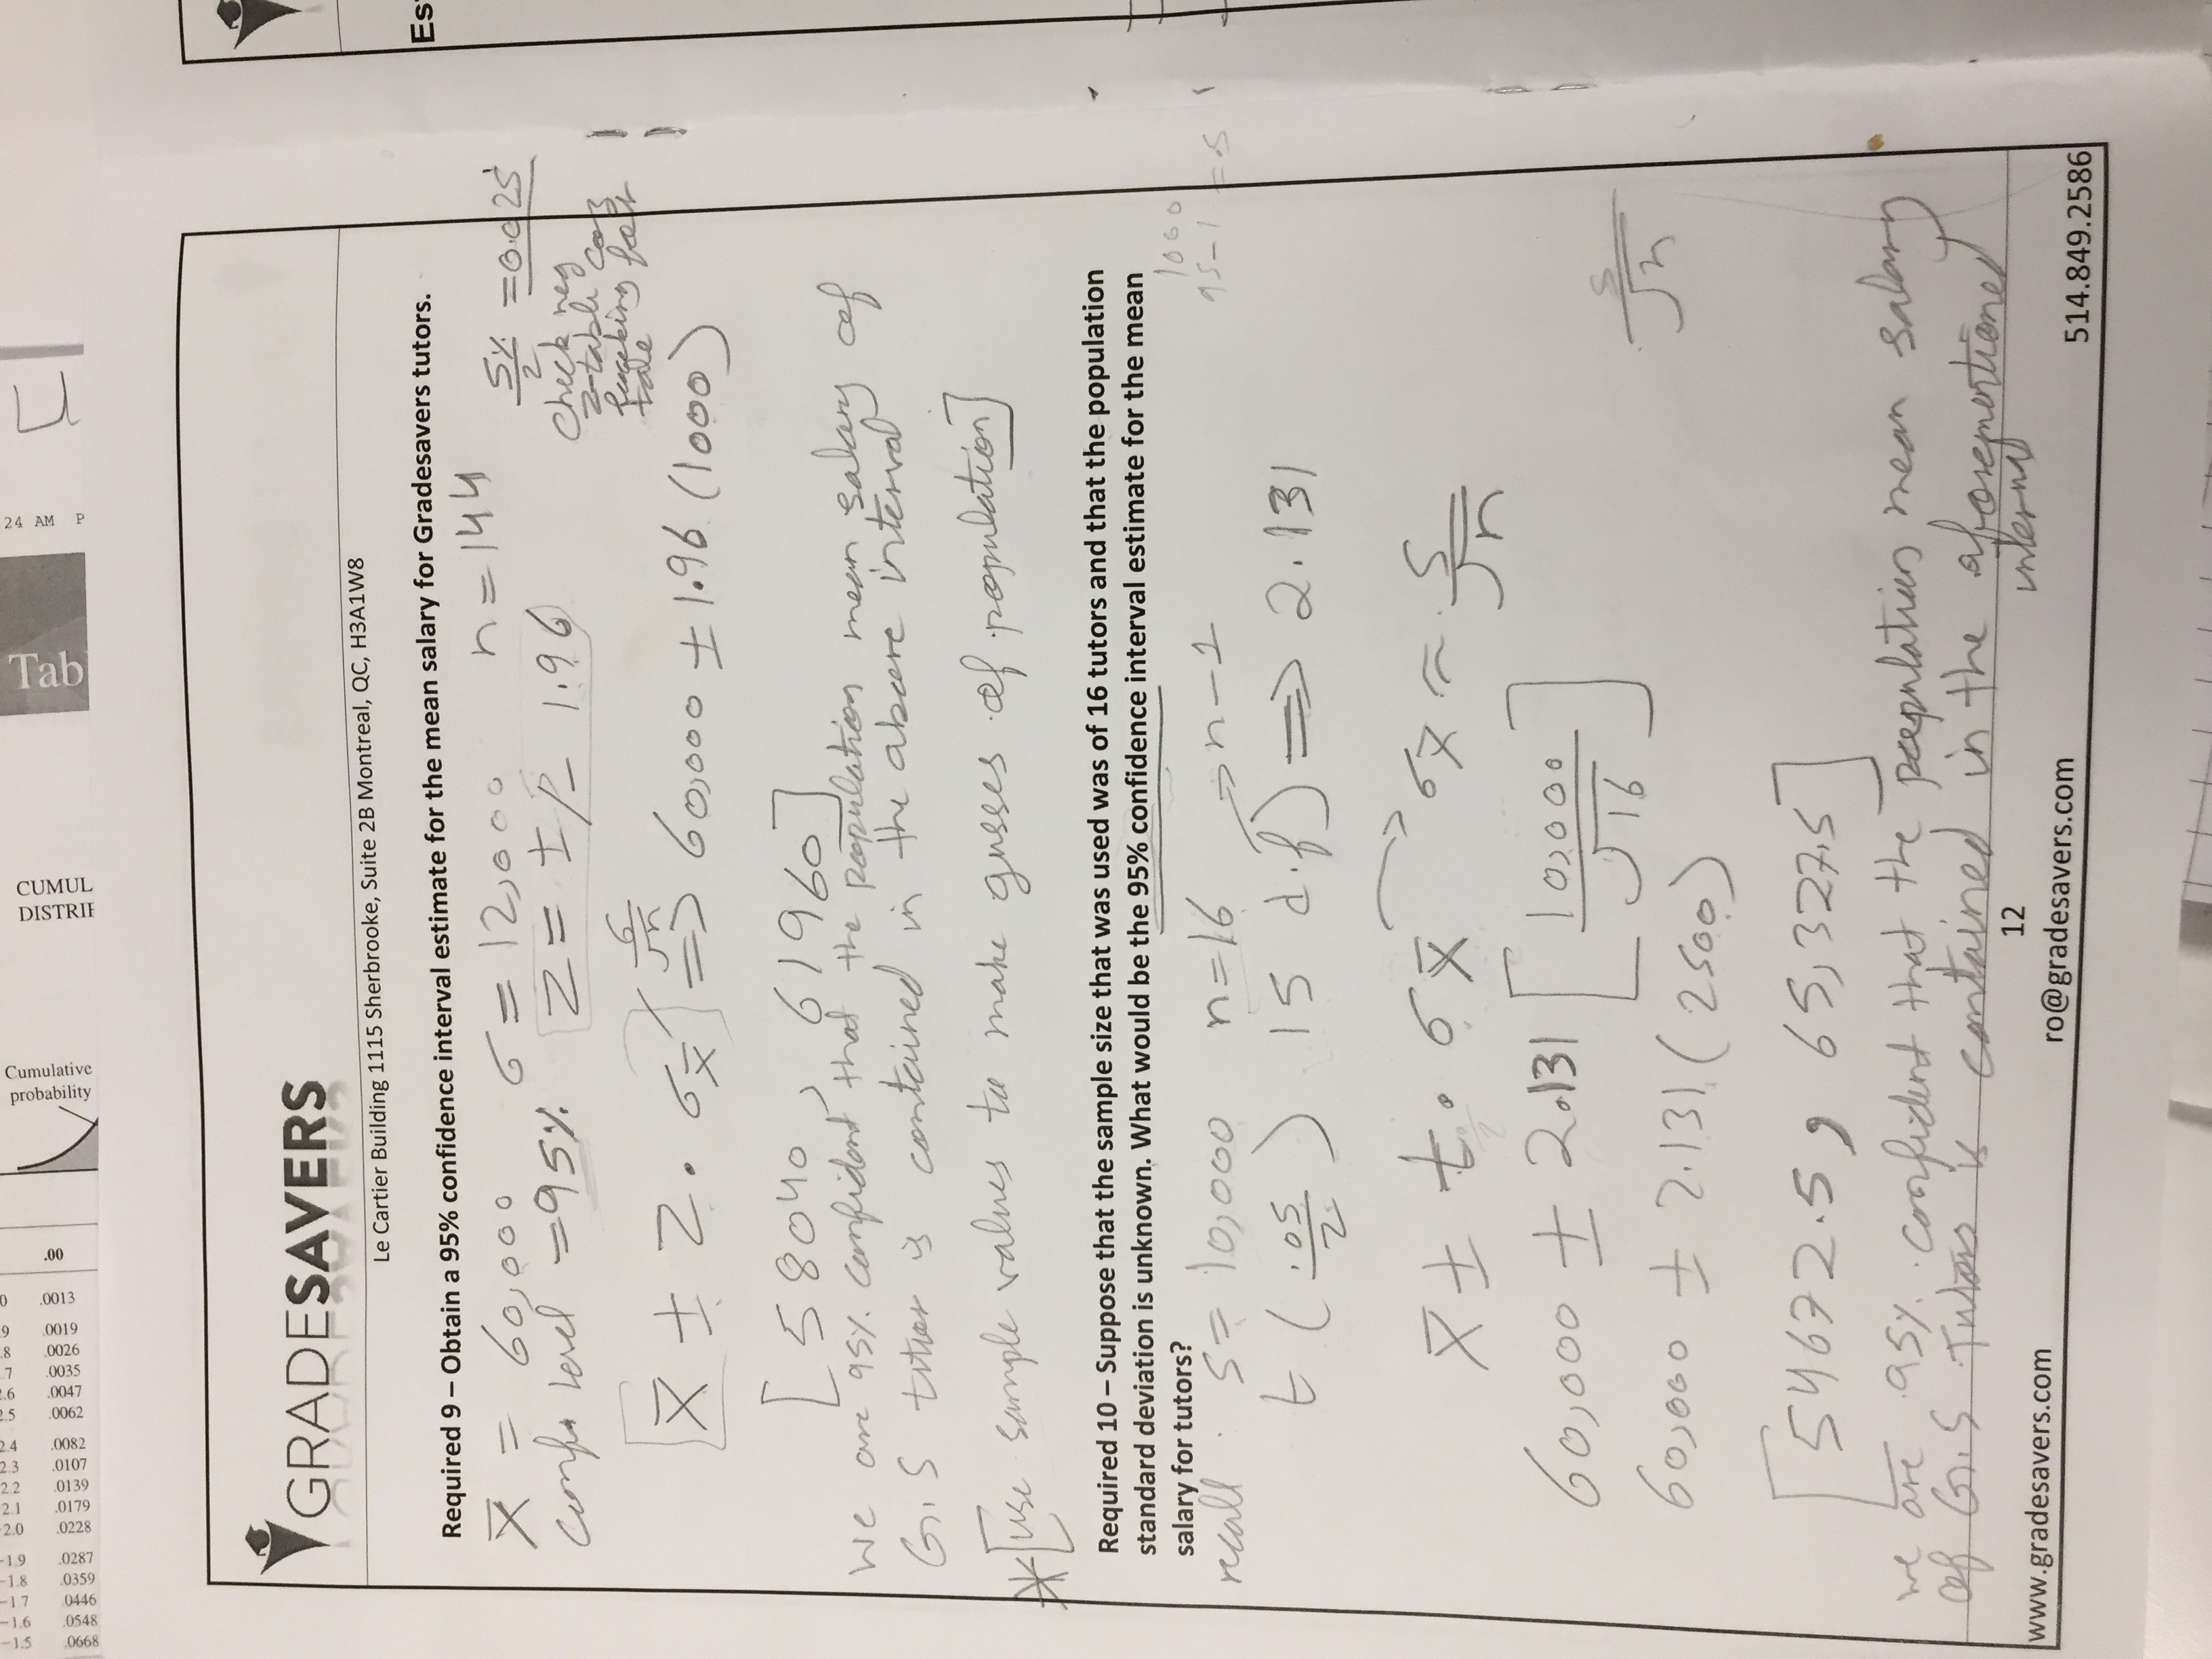 24 AM P
Tab
CUMUL
DISTRIE
Cumulative
probability
.00
.0013
.0019
.0026
.0035
.0047
.0062
2.4 .0082
2.3 .0107
2.2 .0139
2.1 .0179
2.0 .0228
-1.9 .0287
-1.8 .0359
-1.7 .0446
-1.6 .0548
-1.5 .0668
Es
GRADESAVERS
Le Cartier Building 1115 Sherbrooke, Suite 2B Montreal, QC, H3A1W8
Required 9 – Obtain a 95% confidence interval estimate for the mean salary for Gradesavers tutors.
x̄ = 60,000 σ = 12,000 n = 144
5%/2 = 0.025
level = 95% Z = ± /- 1.96
check neg
z-table
x̄ ± Z · σx̄ σ/√n => 60,000 ± 1.96 (1000)
[58040, 61960]
We are 95% confident that the population mean salary of
G.S tutor is contained in the above interval
*[use sample values to make guesses of population]
Required 10 – Suppose that the sample size that was used was of 16 tutors and that the population
standard deviation is unknown. What would be the 95% confidence interval estimate for the mean
salary for tutors?
recall. S = 10,000 n=16 => n-1
t (.05/2) 15 d.f) => 2.131
x̄ ± t · σx̄ -> σx̄ ≈ S/√n
60,000 ± 2.131 [10,000/√16]
s/√n
60,000 ± 2.131 (2500)
[54672.5, 65,327.5]
we are 95% confident that the population mean salary
of G.S Tutors is contained in the aforementioned
interval
12
www.gradesavers.com ro@gradesavers.com 514.849.2586